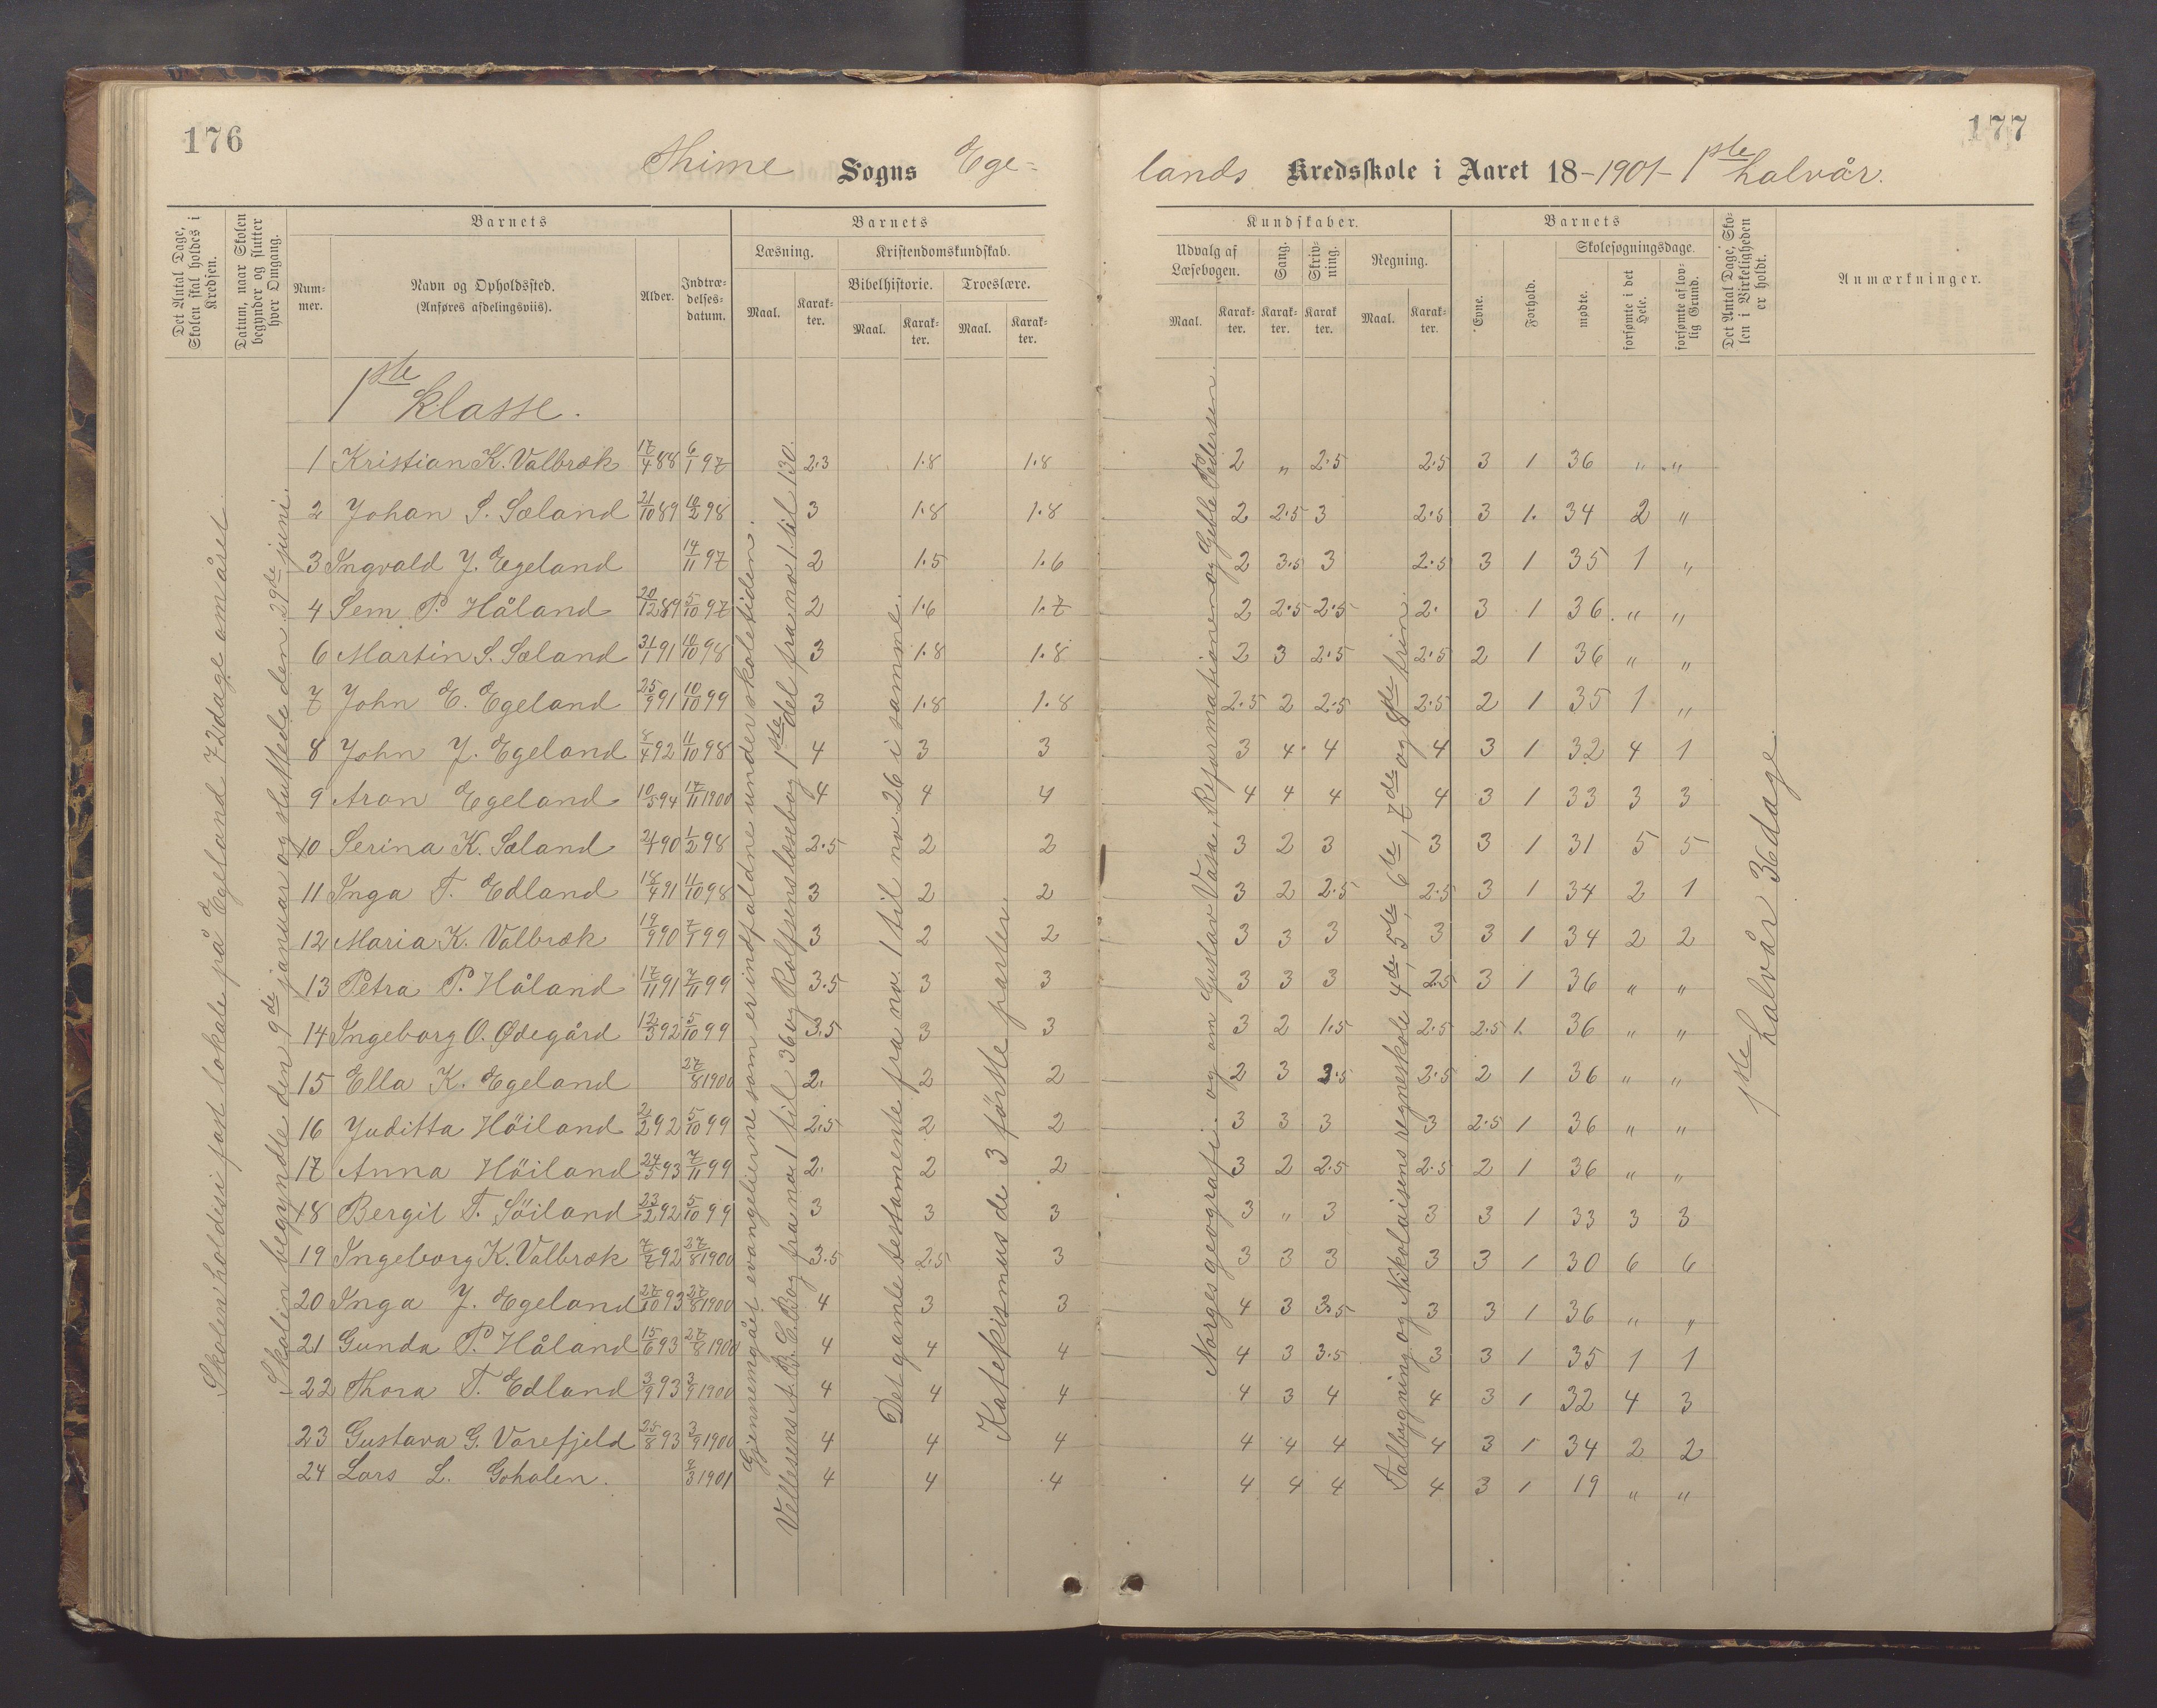 176
Thime Sogns Ege-
Det Antal Dage, Skolen skal holdes i Kredsen.
Datum, naar Skolen begynder og slutter hver Omgang.
Barnets
Nummer.
Navn og Opholdssted.
(Anføres afdelingsviis).
Alder.
Indtrædelsesdatum.
Barnets
Læsning.
Kristendomskundskab.
Bibelhistorie.
Troeslære.
Maal.
Karakter.
Maal.
Karakter.
Maal.
Karakter.
1ste klasse.
1 Kristian K. Valbræk 17/4 88 6/1 97 2.3 1.8 1.8
2 Johan S. Sæland 21/10 89 10/2 98 3 1.8 1.8
3 Ingvald J. Egeland 14/11 97 2 1.5 1.6
4 Sem P. Håland 20/12 89 5/10 97 2 1.6 1.7
6 Martin S. Sæland 31/1 91 10/10 98 3 1.8 1.8
7 John E. Egeland 25/9 91 10/10 99 3 1.8 1.8
8 John J. Egeland 8/4 92 11/10 98 4 3 3
9 Aron Egeland 10/5 94 17/11 1900 4 4 4
10 Serina K. Sæland 2/4 90 1/2 98 2.5 2 2
11 Inga T. Edland 18/4 91 11/10 98 3 2 2
12 Maria K. Valbræk 19/9 90 7/1 99 3 2 2
13 Petra P. Håland 17/11 91 7/11 99 3.5 3 3
14 Ingeborg O. Ødegård 12/3 92 5/10 99 3.5 3 3
15 Ella K. Egeland 27/8 1900 2. 2 2
16 Juditta Höiland 2/2 92 5/10 99 2.5 2 2
17 Anna Höiland 24/5 93 7/11 99 2. 2 2
18 Bergit T. Söiland 23/2 92 5/10 99 3 3 3
19 Ingeborg K. Valbræk 7/7 92 27/8 1900 3.5 2.5 3
20 Inga J. Egeland 27/10 93 27/8 1900 4 3 3
21 Gunda P. Håland 15/6 93 27/8 1900 4 4 4
22 Thora T. Edland 3/9 93 3/9 1900 4 4 4
23 Gustava G. Varefjeld 25/8 93 3/9 1900 4 4 4
24 Lars L. Gohalen. 7/3 1901 4 4 4
Skolen holdes i fast lokale på Egeland 72 dage om året.
Skolen begyndte den 9de januar og sluttede den 29de juni.
Gjennemgået evangelierne som er indfaldne under skoletiden.
Vellesens A.B.C. Bog fra no 1 til 36 og Rolfsens læsebog 1ste del fra no 1 til 130.
Det gamle testamente fra no. 1 til no 26 i samme.
Katekismus de 3 første parter.
177
lands Kredsskole i Aaret 18-1901- 1ste halvår.
Kundskaber.
Udvalg af Læsebogen.
Sang.
Skrivning.
Regning.
Maal.
Karakter.
Karakter.
Karakter.
Maal.
Karakter.
Barnets
Evne.
Forhold.
Skolesøgningsdage.
mødte.
forsømte i det Hele.
forsømte af lovlig Grund.
Det Antal Dage, Skolen i Virkeligheden er holdt.
Anmærkninger.
2 " 2.5 2.5 3 1 36 " "
2 2.5 3 2.5 3 1. 34 2 "
2 3.5 3 2.5 3 1 35 1 "
2 2.5 2.5 2. 3 1 36. " "
2 3 2.5 2.5 2 1 36 " "
2.5 2 2.5 2.5 2 1 35 1 "
3 4. 4 4 3 1 32 4 1
4 4 4 4 3 1 33 3 3
3 2 3 3 3 1 31 5 5
3 2 2.5 2.5 3 1 34 2 1
3 3 3 3 3 1 34 2 2
3 3 3 2.5 3 1 36 " "
3 2 1.5 2.5 2.5 1. 36 " "
2 3 3.5 2.5 2 1 36 " "
3 3 3 3 2.5 1 36 " "
3 2 2.5 2.5 2 1 36 " "
3 " 3 3 3 1 33 3 3
3 3 3 3 3 1 30 6 6
4 3 3.5 3 3 1 36 " "
4 3 3.5 3 3 1 35 1 1
4 3 4 4 3 1 32 4 3
4 4 4 4 3 1 34 2 2
4 4 4 4 3 1 19 " "
Norges geografi. og om Gustav Vasa, Reformationen og Gjeble Pedersen.
Talbygning og Nikolaisens regneskole 4de, 5te, 6te, 7de og 8de trin.
1ste halvår 36 dage.